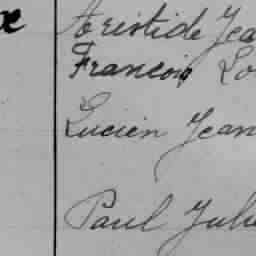 Aristide Jea
Francois Lo
Lucien Jean
Paul Jule